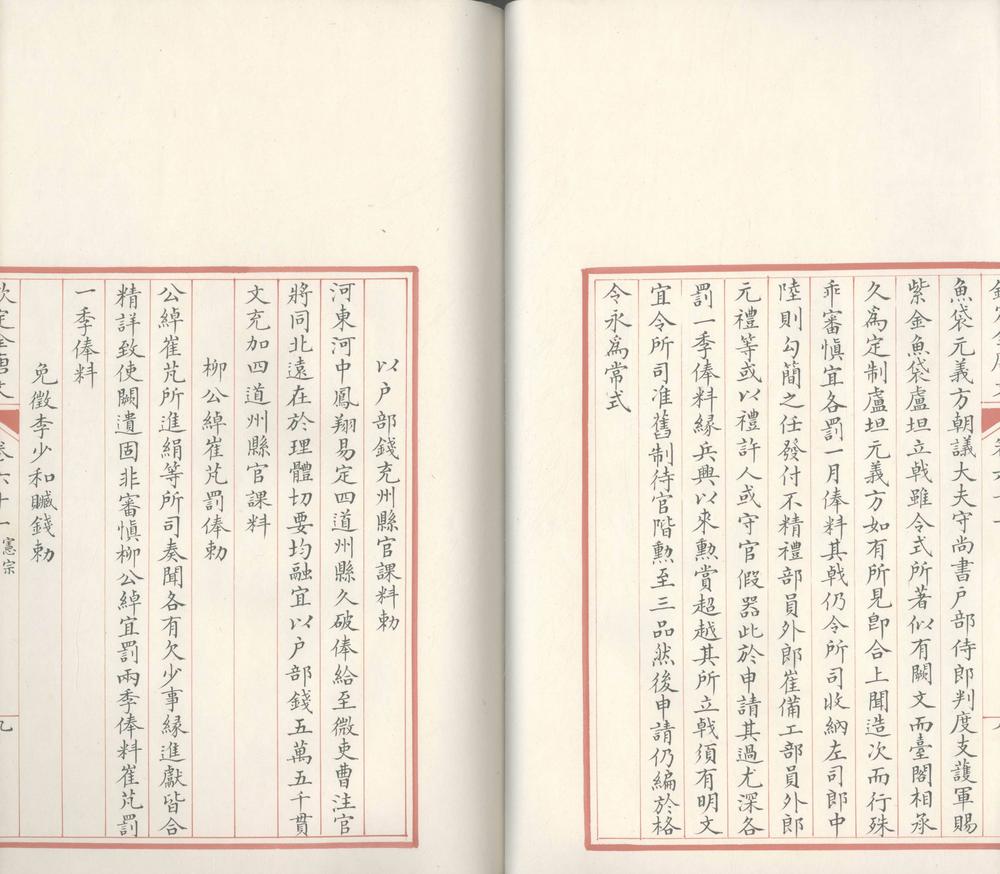 魚袋元義方朝議大夫守尚書戶部侍郎判度支護軍賜
紫金魚袋盧坦立戟雖令式所著似有闕文而臺閣相承
久爲定制盧坦元義方如有所見卽合上聞造次而行殊
乖審愼宜各罰一月俸料其戟仍令所司收納左司郎中
陸則勾簡之任發付不精禮部員外郎崔備工部員外郎
元禮等或以禮許人或守官假器此於申請其過尤深各
罰一季俸料緣兵興以來勲賞超越其所立戟須有明文
宜令所司准舊制待官階勲至三品然後申請仍編於格
令永爲常式
以戶部錢充州縣官課料勅
河東河中鳳翔易定四道州縣久破俸給至微吏曹注官
將同北遠在於理體切要均融宜以戶部錢五萬五千貫
文充加四道州縣官課料
柳公綽崔芃罰俸勅
公綽崔芃所進絹等所司奏聞各有欠少事緣進獻皆合
精詳致使闕遺固非審愼柳公綽宜罰兩季俸料崔芃罰
一季俸料
免徵李少和贓錢勅
欽定全唐文
卷六十一
憲宗
九